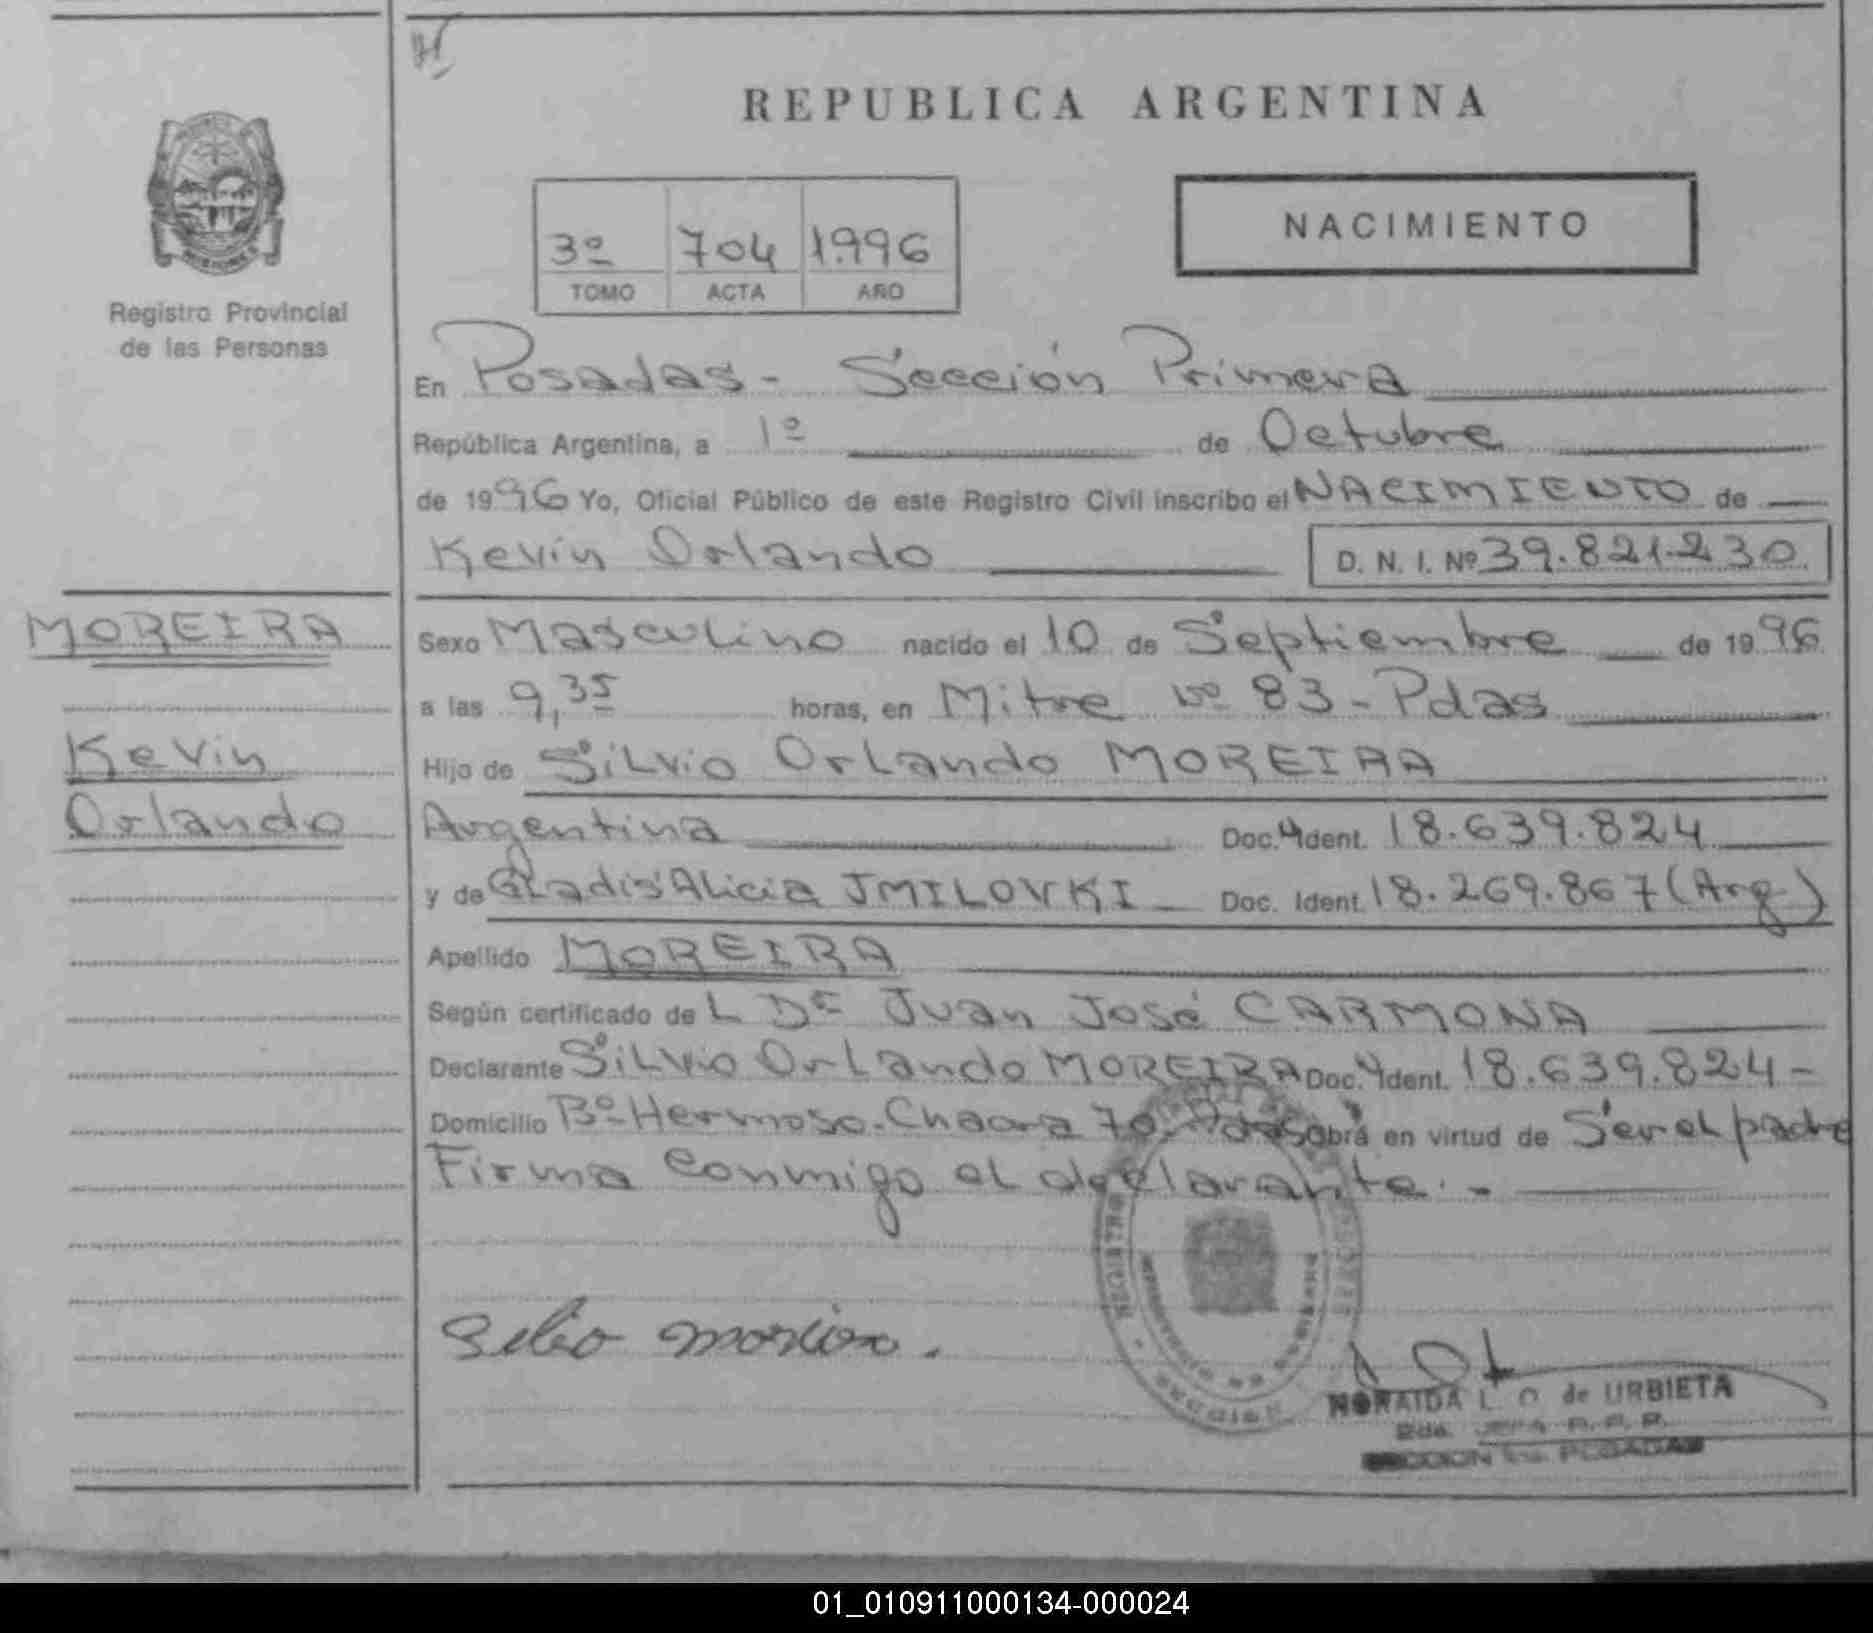 REPUBLICA ARGENTINA
NACIMIENTO
3º 704 1.996
TOMO ACTA AÑO
Registro Provincial
de las Personas
En Posadas - Sección Primera
República Argentina, a 1º de Octubre
de 1996 Yo, Oficial Público de este Registro Civil inscribo el NACIMIENTO de
Kevin Orlando D. N. I. Nº 39.821.230
MOREIRA
Kevin
Orlando
Sexo Masculino nacido el 10 de Septiembre de 1996
a las 9,35 horas, en Mitre Nº 83 - Pdas
Hijo de Silvio Orlando MOREIRA
Argentina Doc. Ident. 18.639.824
y de Gladis Alicia JMILOVKI Doc. Ident. 18.269.867 (Arg)
Apellido MOREIRA
Según certificado de L Dr Juan José CARMONA
Declarante Silvio Orlando MOREIRA Doc. Ident. 18.639.824 -
Domicilio Bº Hermoso - Chacra 70 - Pdas Obra en virtud de Ser el padre
Firma conmigo el declarante. -
REGISTRO
NORAIDA L. O. de URBIETA
2da. JEFA R. P. P.
SECCION 1ra. POSADAS
01_010911000134-000024